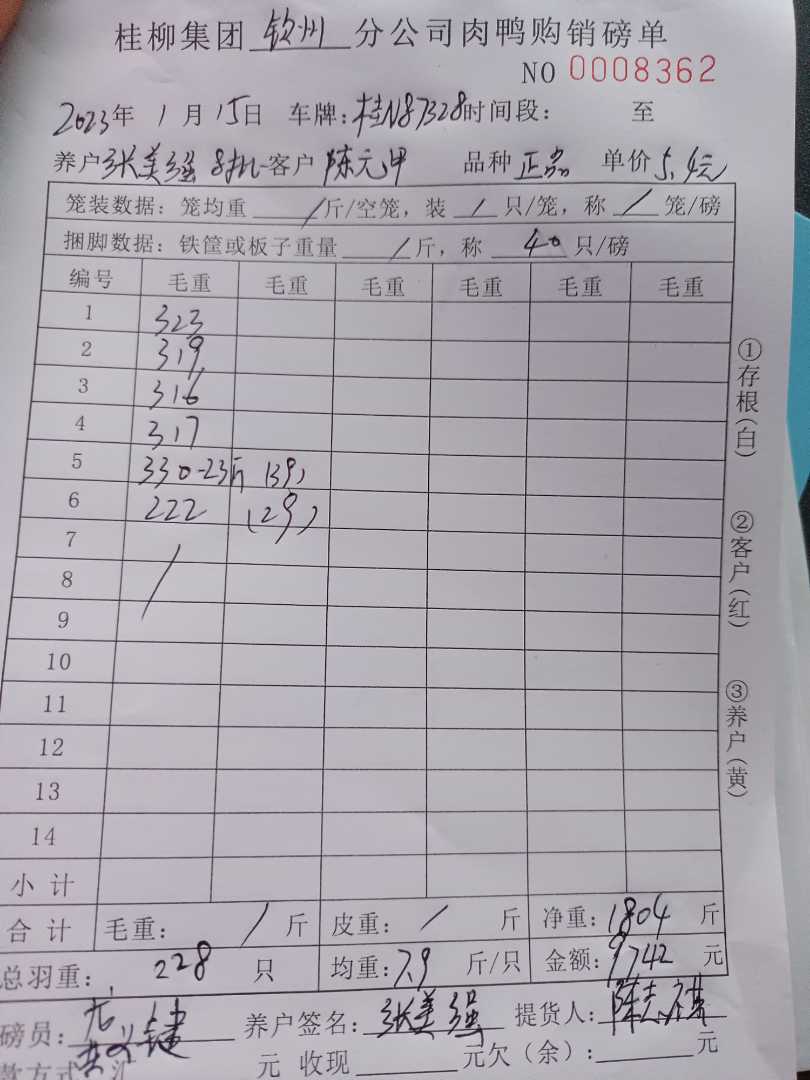 桂柳集团 钦州 分公司肉鸭购销磅单
NO 0008362
2023年 1月15日 车牌:桂N87328时间段: 至
养户张美强 8批 客户 陈元 品种 正品 单价5.4元
笼装数据:笼均重 / 斤/空笼,装 / 只/笼,称 / 笼/磅
捆脚数据:铁筐或板子重量 / 斤,称 40 只/磅
编号 毛重 毛重 毛重 毛重 毛重 毛重
1 323
2 319
3 316
4 317
5 330-23斤 (39)
6 222 (29)
7
8 /
9
10
11
12
13
14
小计
合计 毛重: / 斤 皮重: / 斤 净重:1804 斤
总羽重: 228 只 均重:7.9 斤/只 金额:9742 元
磅员: 键 养户签名:张美强 提货人:陈志
款方式 元 收现 元欠(余): 元
①存根(白)
②客户(红)
③养户(黄)